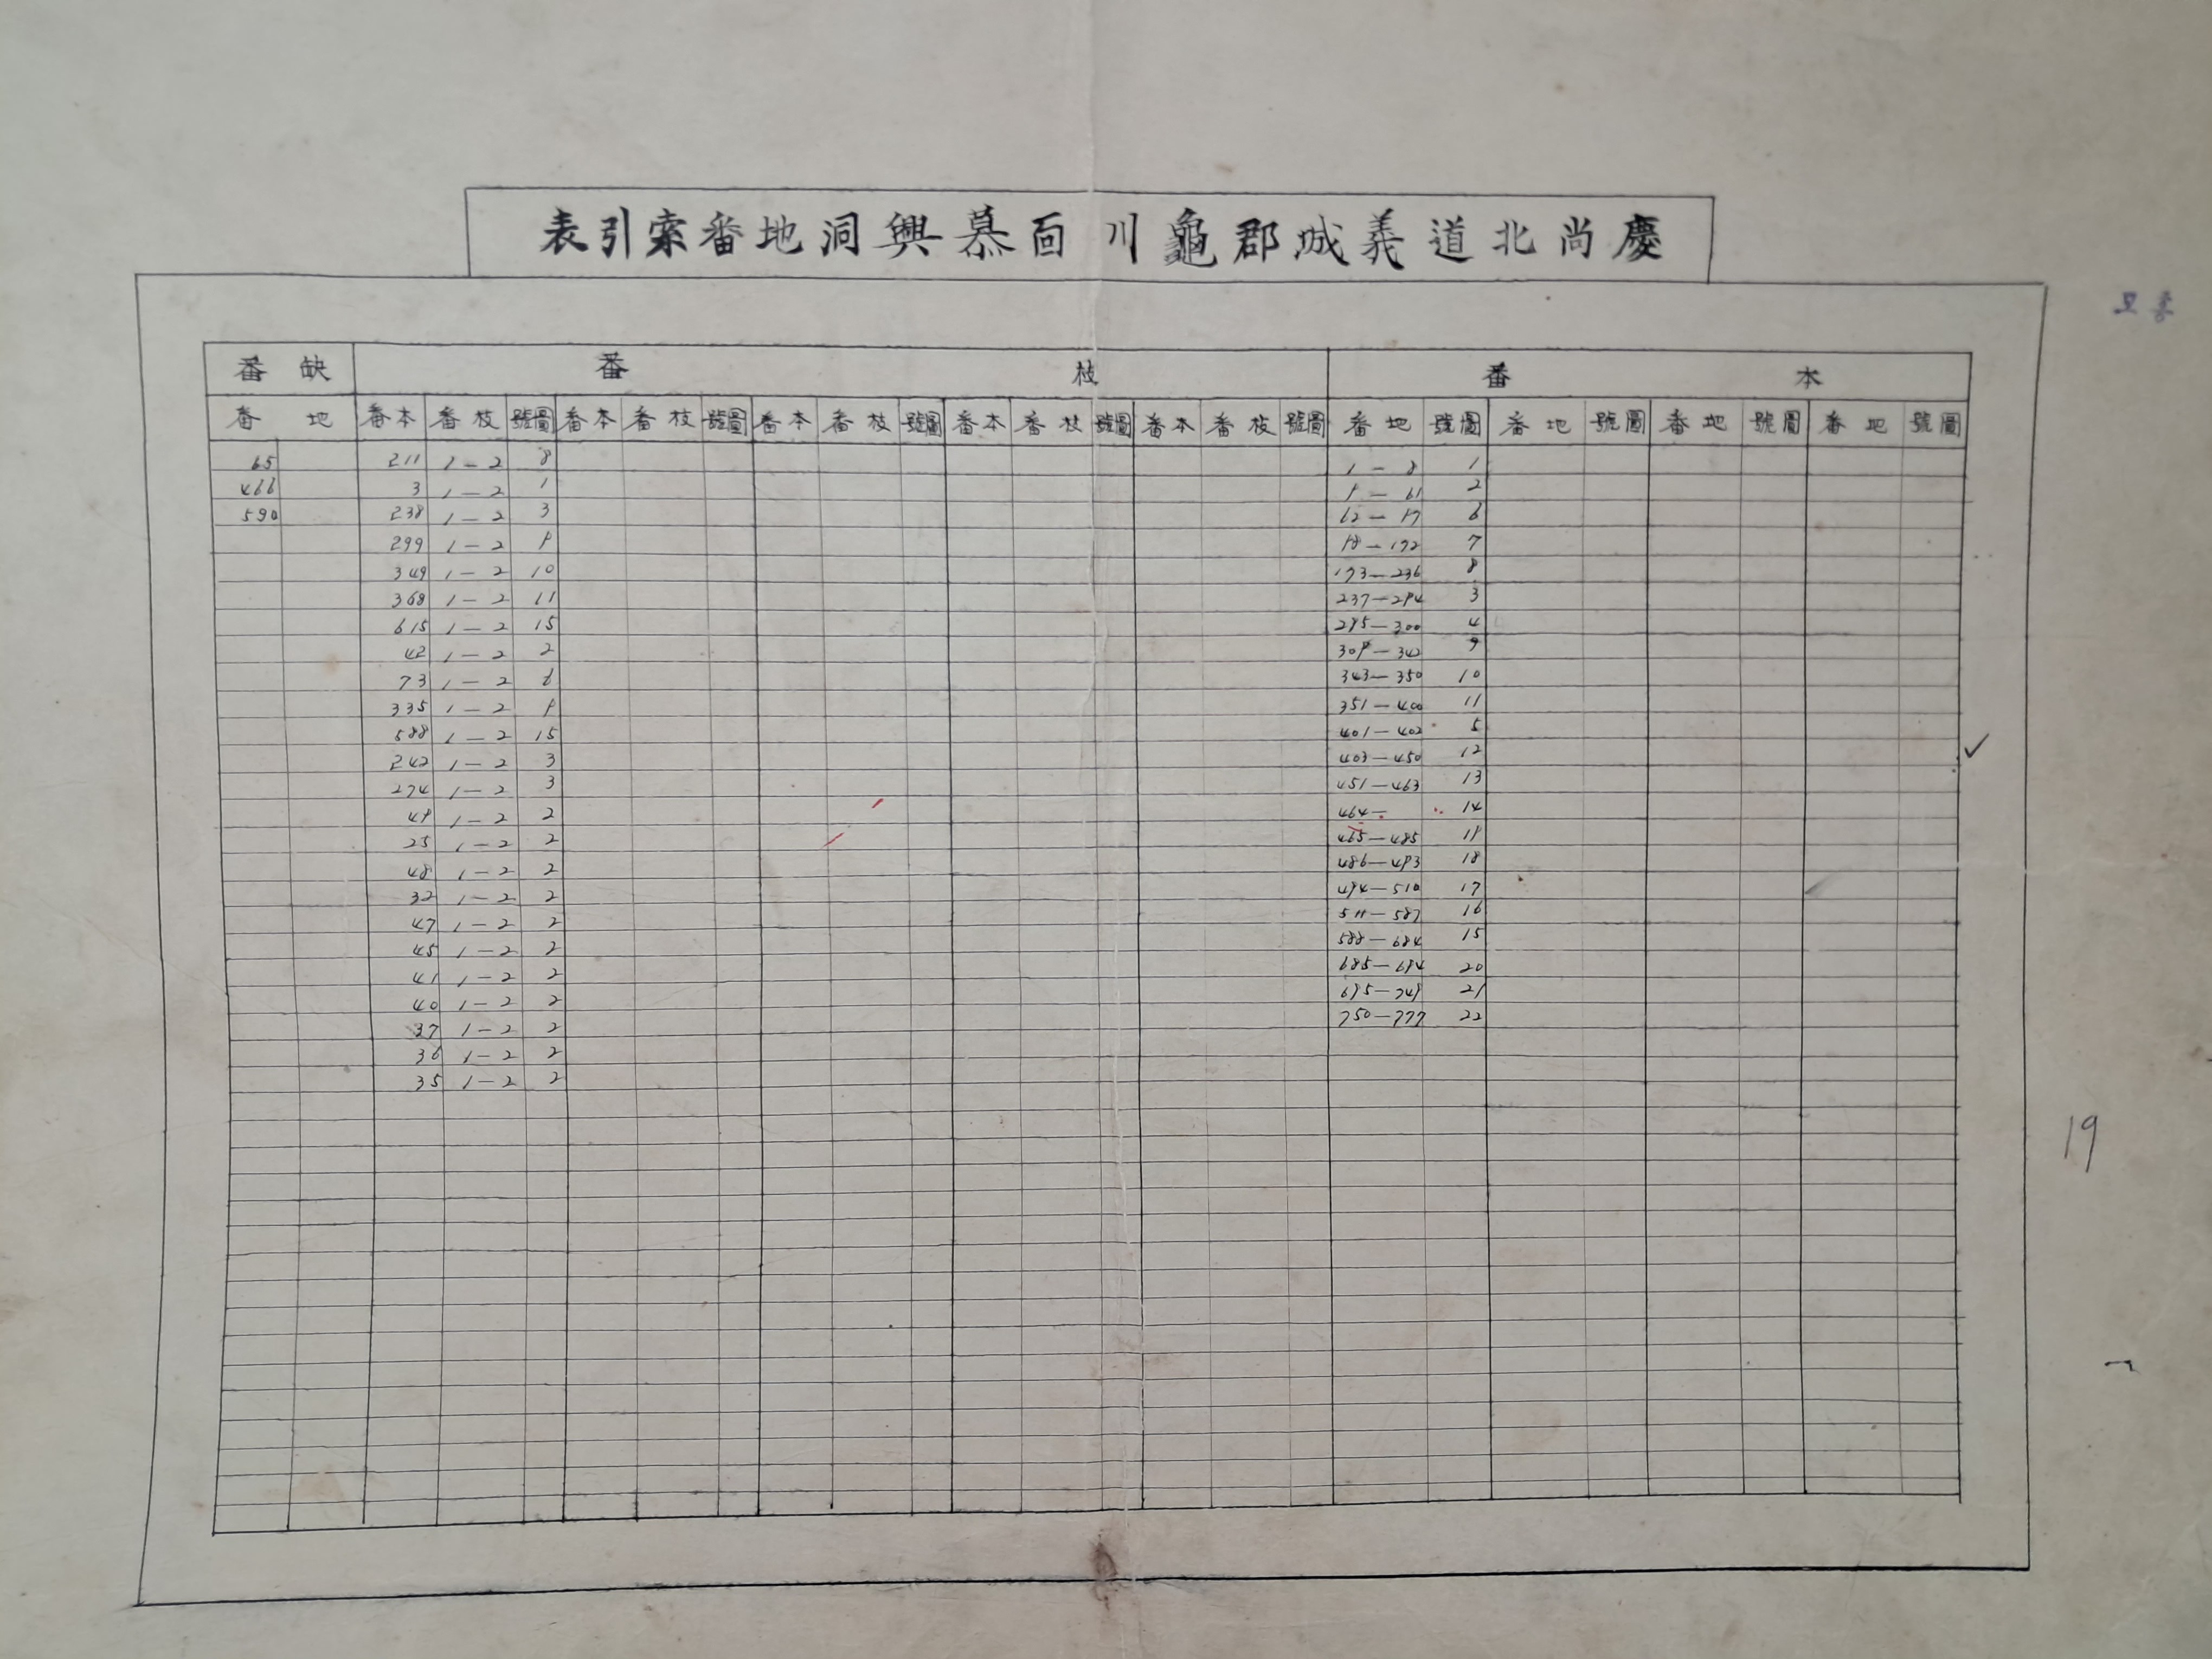 慶尚北道義城郡龜川面慕興洞地番索引表
모흥
本番 枝番 缺番
圖號 地番 圖號 地番 圖號 地番 圖號 地番 圖號 枝番 本番 圖號 枝番 本番 圖號 枝番 本番 圖號 枝番 本番 圖號 枝番 本番 地番
65 211 1-2 8 1-8 1
466 3 1-2 1 9-61 2
590 238 1-2 3 62-97 6
299 1-2 9 98-192 7
349 1-2 10 193-236 8
368 1-2 11 237-294 3
615 1-2 15 295-300 4
42 1-2 2 309-342 9
73 1-2 6 343-350 10
335 1-2 9 351-400 11
588 1-2 15 401-402 5
242 1-2 3 403-450 12
274 1-2 3 451-463 13
49 1-2 2 464- 14
25 1-2 2 465-485 19
48 1-2 2 486-493 18
32 1-2 2 494-510 17
47 1-2 2 511-587 16
45 1-2 2 588-684 15
41 1-2 2 685-694 20
40 1-2 2 695-749 21
37 1-2 2 750-777 22
36 1-2 2
35 1-2 2
19